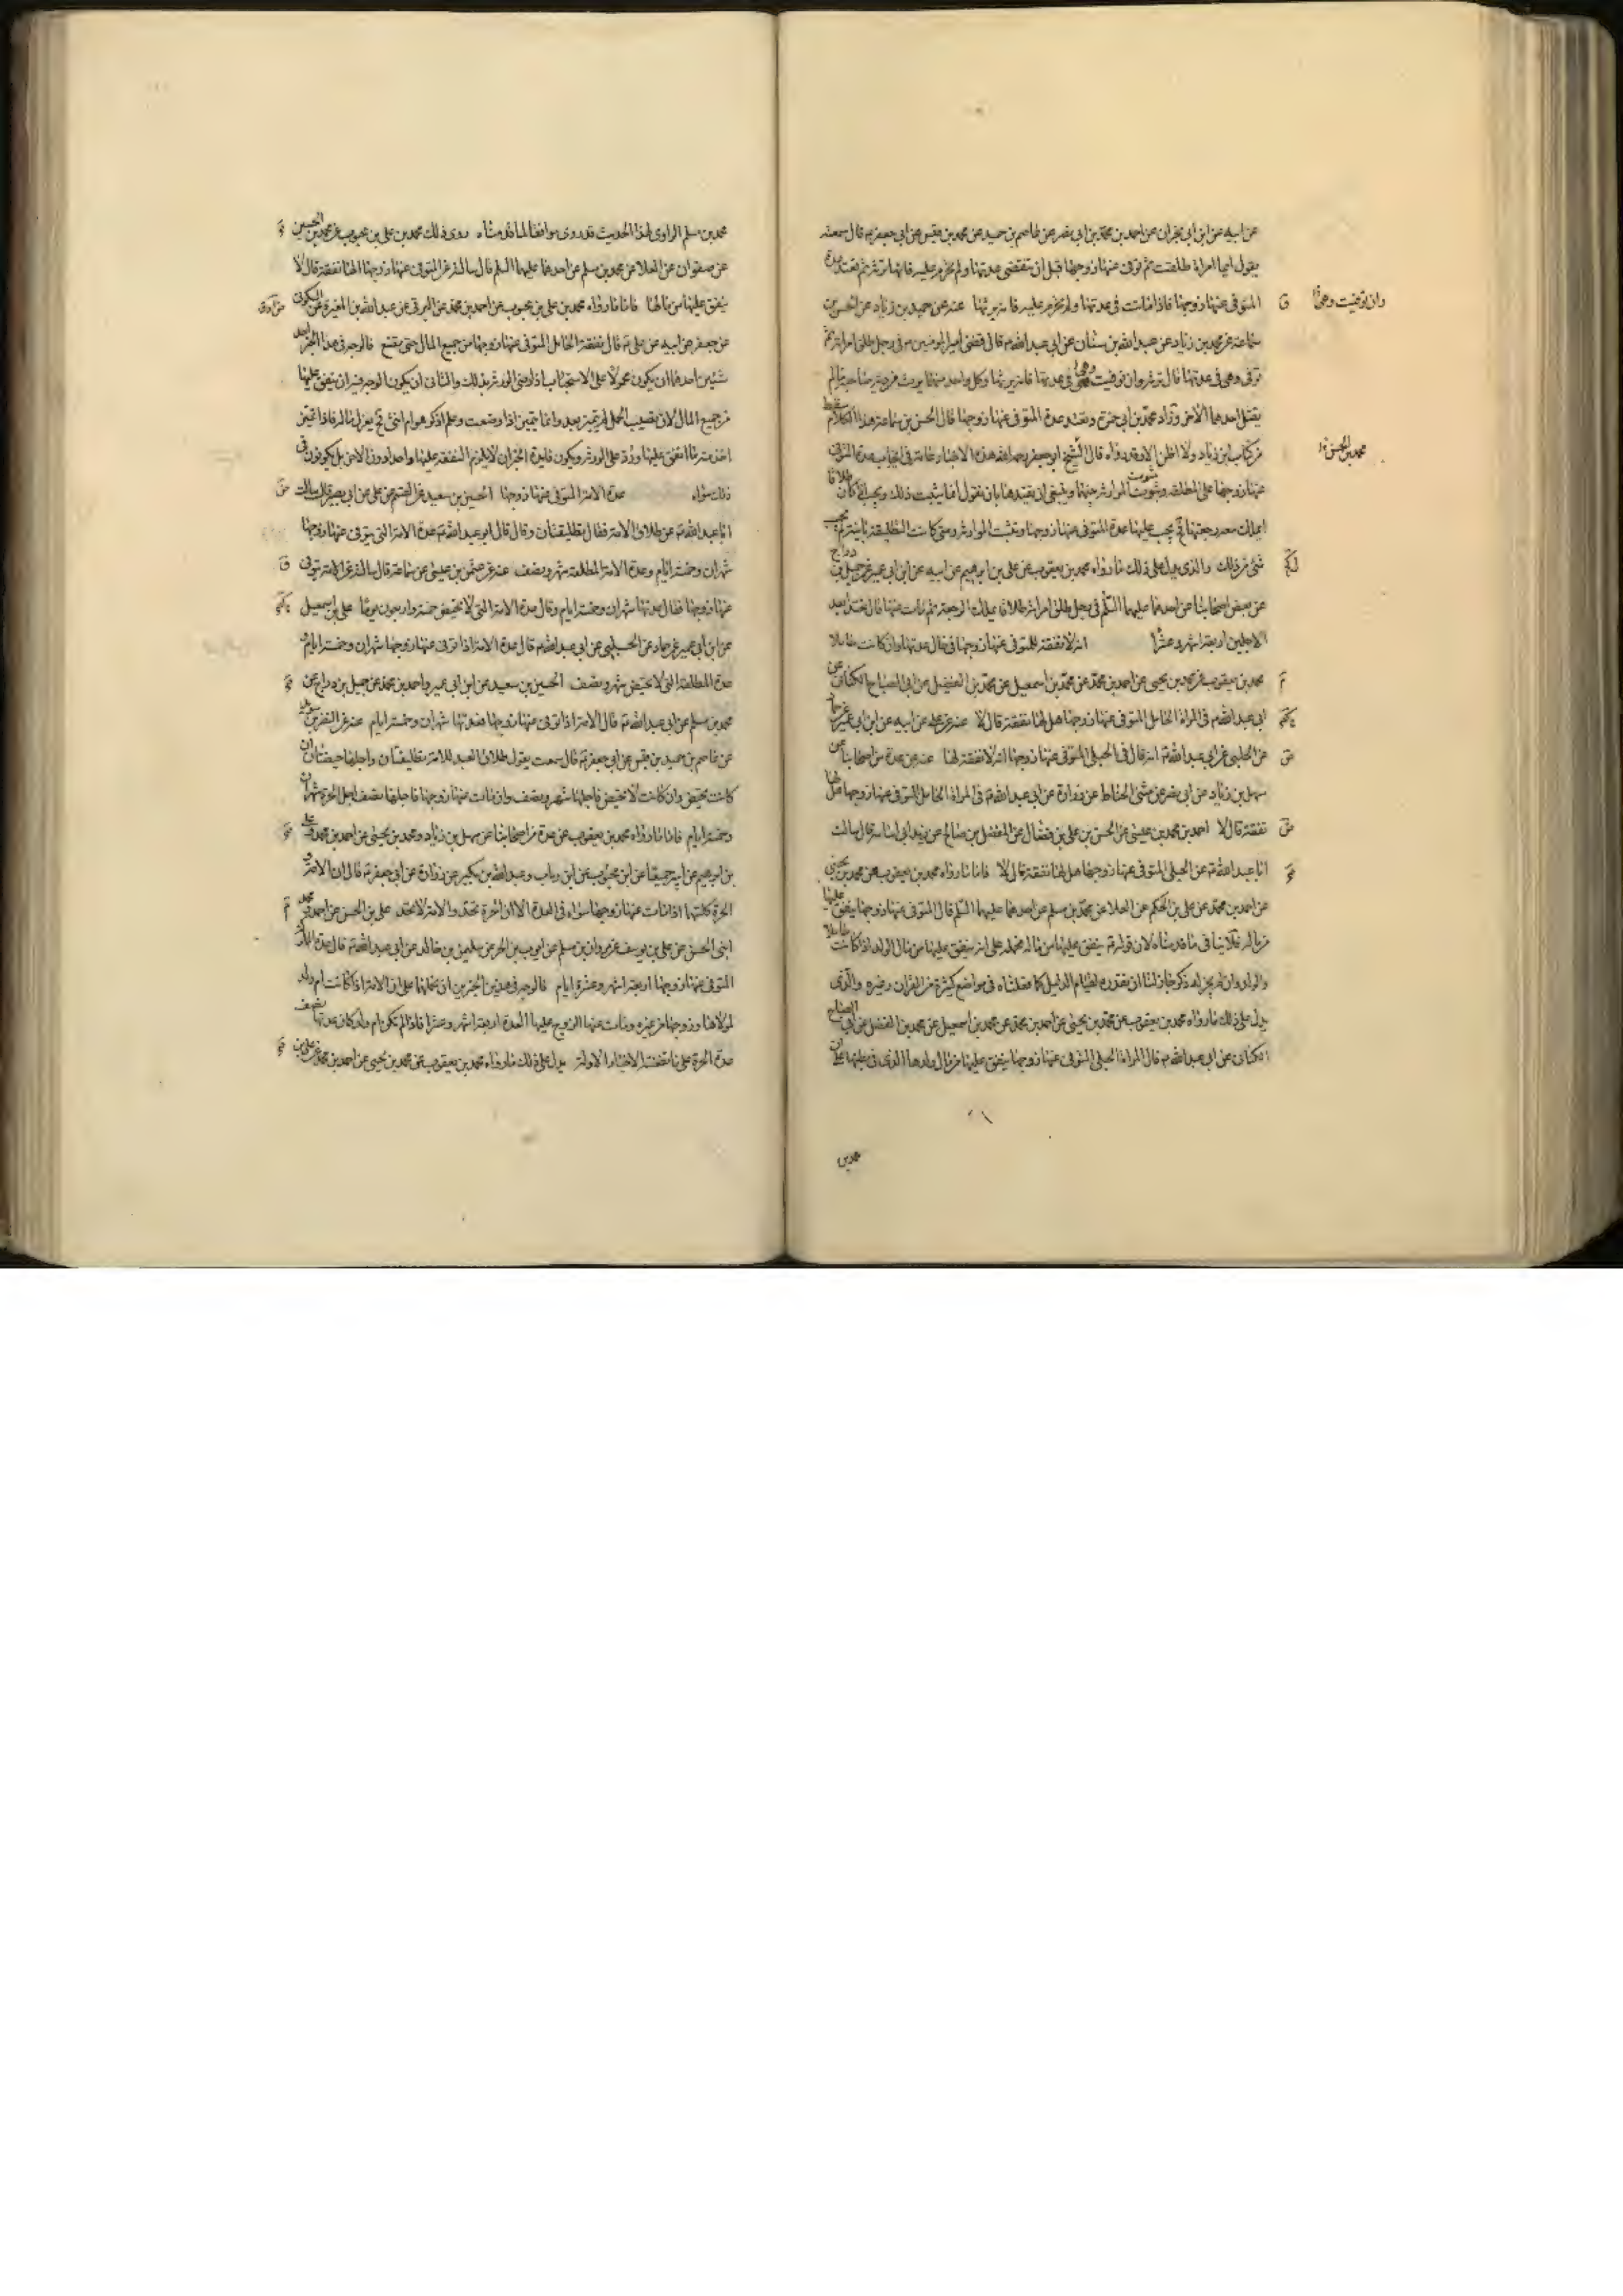 عن ابيه عن ابن ابي نجران عن احمد بن محمد بن ابي نصر عن عاصم بن حميد عن محمد بن قيس عن ابي جعفر ع قال سمعته
يقول ايما امراة طلقت ثم توفى عنها زوجها قبل ان تنقضى عدتها ولم تحرم عليه فانها ترثه ثم تعتد عدة
المتوفى عنها زوجها فاذا ماتت في عدتها ولم تحرم عليه فانه يرثها عنه عن حميد بن زياد عن الحسن بن
وان توفيت وهى
سماعة عن محمد بن زياد عن عبد الله بن سنان عن ابي عبد الله ع قال قضى امير المومنين ع في رجل طلق امراته ثم
توفى وهى فى عدتها قال ترثه وان توفيت وهى في عدتها فانه يرثها وكل واحد منهما يرث من دية صاحبه ما لم
يقتل احدهما الاخر وزاد محمد بن ابي حمزة وتعتد عدة المتوفى عنها زوجها قال الحسن بن سماعة هذا الكلام سقط
من كتاب ابن زياد ولا اظن الا وقد رواه قال الشيخ ابو جعفر رحمه الله هذه الاخبار عامة في ايجاب عدة المتوفى
محمد بن الحسن
عنها زوجها على المطلقة وثبوت الموارثة بينهما وينبغى ان نقيدها بان نقول انما يثبت ذلك ويجب اذا كان طلاقا
يملك معه رجعتها فح يجب عليها عدة المتوفى عنها زوجها وتثبت الموارثة ومتى كانت التطليقة باينة لم يجب
شئ من ذلك والذى يدل على ذلك ما رواه محمد بن يعقوب عن على بن ابرهيم عن ابيه عن ابن ابي عمير عن جميل بن دراج
عن بعض اصحابنا عن احدهما عليهما السلم في رجل طلق امراته طلاقا يملك الرجعة ثم مات عنها قال تعتد ابعد
الاجلين اربعة اشهر وعشرا انه لا نفقة للمتوفى عنها زوجها في حال عدتها وان كانت حاملا
محمد بن يعقوب عن محمد بن يحيى عن احمد بن محمد عن محمد بن اسمعيل عن محمد بن الفضيل عن ابي الصباح الكنانى عن
ابي عبد الله ع في المراة الحامل المتوفى عنها زوجها هل لها نفقة قال لا عنه عن على عن ابيه عن ابن ابي عمير عن حماد
عن الحلبى عن ابي عبد الله ع انه قال في الحبلى المتوفى عنها زوجها انه لا نفقة لها عنه عن عدة من اصحابنا عن
سهل بن زياد عن ابي نصر عن مثنى الحناط عن زرارة عن ابي عبد الله ع في المراة الحامل المتوفى عنها زوجها هل لها
نفقة قال لا احمد بن محمد بن عيسى عن الحسن بن على بن فضال عن المفضل بن صالح عن زيد ابي اسامة قال سالت
ابا عبد الله ع عن الحبلى المتوفى عنها زوجها هل لها نفقة قال لا فاما ما رواه محمد بن يعقوب عن محمد بن يحيى
عن احمد بن محمد عن على بن الحكم عن العلا عن محمد بن مسلم عن احدهما عليهما السلم قال المتوفى عنها زوجها ينفق عليها
من ماله فلا ينافى ما قدمناه لان قوله ع ينفق عليها من ماله نحمله على انه ينفق عليها من مال الولد اذا كانت حاملا
والولد وان لم يجر له ذكر جاز لنا ان نقدره لقيام الدليل كما فعلناه في مواضع كثيرة من القران وغيره والذى
يدل على ذلك ما رواه محمد بن يعقوب عن محمد بن يحيى عن احمد بن محمد عن محمد بن اسمعيل عن محمد بن الفضل عن ابي الصباح
الكنانى عن ابي عبد الله ع قال المراة الحبلى المتوفى عنها زوجها ينفق عليها من مال ولدها الذى في بطنها
محمد بن
محمد بن مسلم الراوى لهذا الحديث قد روى موافقا لما قدمناه روى ذلك محمد بن على بن محبوب عن محمد بن الحسين
عن صفوان عن العلا عن محمد بن مسلم عن احدهما عليهما السلم قال سالته عن المتوفى عنها زوجها الها نفقة قال لا
ينفق عليها من مالها فاما ما رواه محمد بن على بن محبوب عن احمد بن محمد عن البرقى عن عبد الله بن المغيرة عن السكونى
عن جعفر عن ابيه عن على ع قال نفقة الحامل المتوفى عنها زوجها من جميع المال حتى تضع فالوجه في هذا الخبر احد
شيئين احدهما ان يكون محمولا على الاستحباب اذا رضى الورثة بذلك والثانى ان يكون الوجه فيه ان ينفق عليها
من جميع المال لان نصيب الحمل لم يتميز بعد وانما يتميز اذا وضعت وعلم اذكر هو ام انثى فح يعزل ماله فاذا تميز
اخذ منه ما انفق عليها ورد على الورثة ويكون فايدة الخبر ان لا يلزم النفقة عليها واحد دون الاخر بل يكونون في
ذلك سواء عدة الامة المتوفى عنها زوجها الحسين بن سعيد عن القسم عن على عن ابي بصير قال سالت
ابا عبد الله ع عن طلاق الامة فقال تطليقتان وقال قال ابو عبد الله ع عدة الامة التى يتوفى عنها زوجها
شهران وخمسة ايام وعدة الامة المطلقة شهر ونصف عنه عن عثمن بن عيسى عن سماعة قال سالته عن الامة يتوفى
عنها زوجها فقال عدتها شهران وخمسة ايام وقال عدة الامة التى لا تحيض خمسة واربعون يوما على بن اسمعيل
عن ابن ابي عمير عن حماد عن الحلبى عن ابي عبد الله ع قال عدة الامة اذا توفى عنها زوجها شهران وخمسة ايام و
عدة المطلقة التى لا تحيض شهر ونصف الحسين بن سعيد عن ابن ابي عمير واحمد بن محمد عن جميل بن دراج عن
محمد بن مسلم عن ابي عبد الله ع قال الامة اذا توفى عنها زوجها فعدتها شهران وخمسة ايام عنه عن النضر بن سويد
عن عاصم بن حميد بن قيس عن ابي جعفر ع قال سمعت يقول طلاق العبد للامة تطليقتان واجلها حيضتان ان
كانت تحيض وان كانت لا تحيض فاجلها شهر ونصف وان مات عنها زوجها فاجلها نصف اجل الحرة شهران
وخمسة ايام فاما ما رواه محمد بن يعقوب عن عدة من اصحابنا عن سهل بن زياد ومحمد بن يحيى عن احمد بن محمد وعلى
بن ابرهيم عن ابيه جميعا عن ابن محبوب عن ابن رياب وعبد الله بن بكير عن زرارة عن ابي جعفر ع قال ان الامة و
الحرة كلتيهما اذا مات عنها زوجها سواء في العدة الا ان الحرة تحد والامة لا تحد على بن الحسن عن احمد و محمد
ابنى الحسن عن على بن يوسف عن مروان بن مسلم عن ايوب بن الحر عن سليمن بن خالد عن ابي عبد الله ع قال عدة المملوكة
المتوفى عنها زوجها اربعة اشهر وعشرة ايام فالوجه في هذين الخبرين ان نحملهما على ان الامة اذا كانت ام ولد
لمولاها وزوجها من غيره ومات عنها الزوج عليها العدة اربعة اشهر وعشرا فاذا لم تكن ام ولد كان عدتها نصف
عدة الحرة على ما تضمنته الاخبار الاولة يدل على ذلك ما رواه محمد بن يعقوب عن محمد بن يحيى عن احمد بن محمد عن على بن